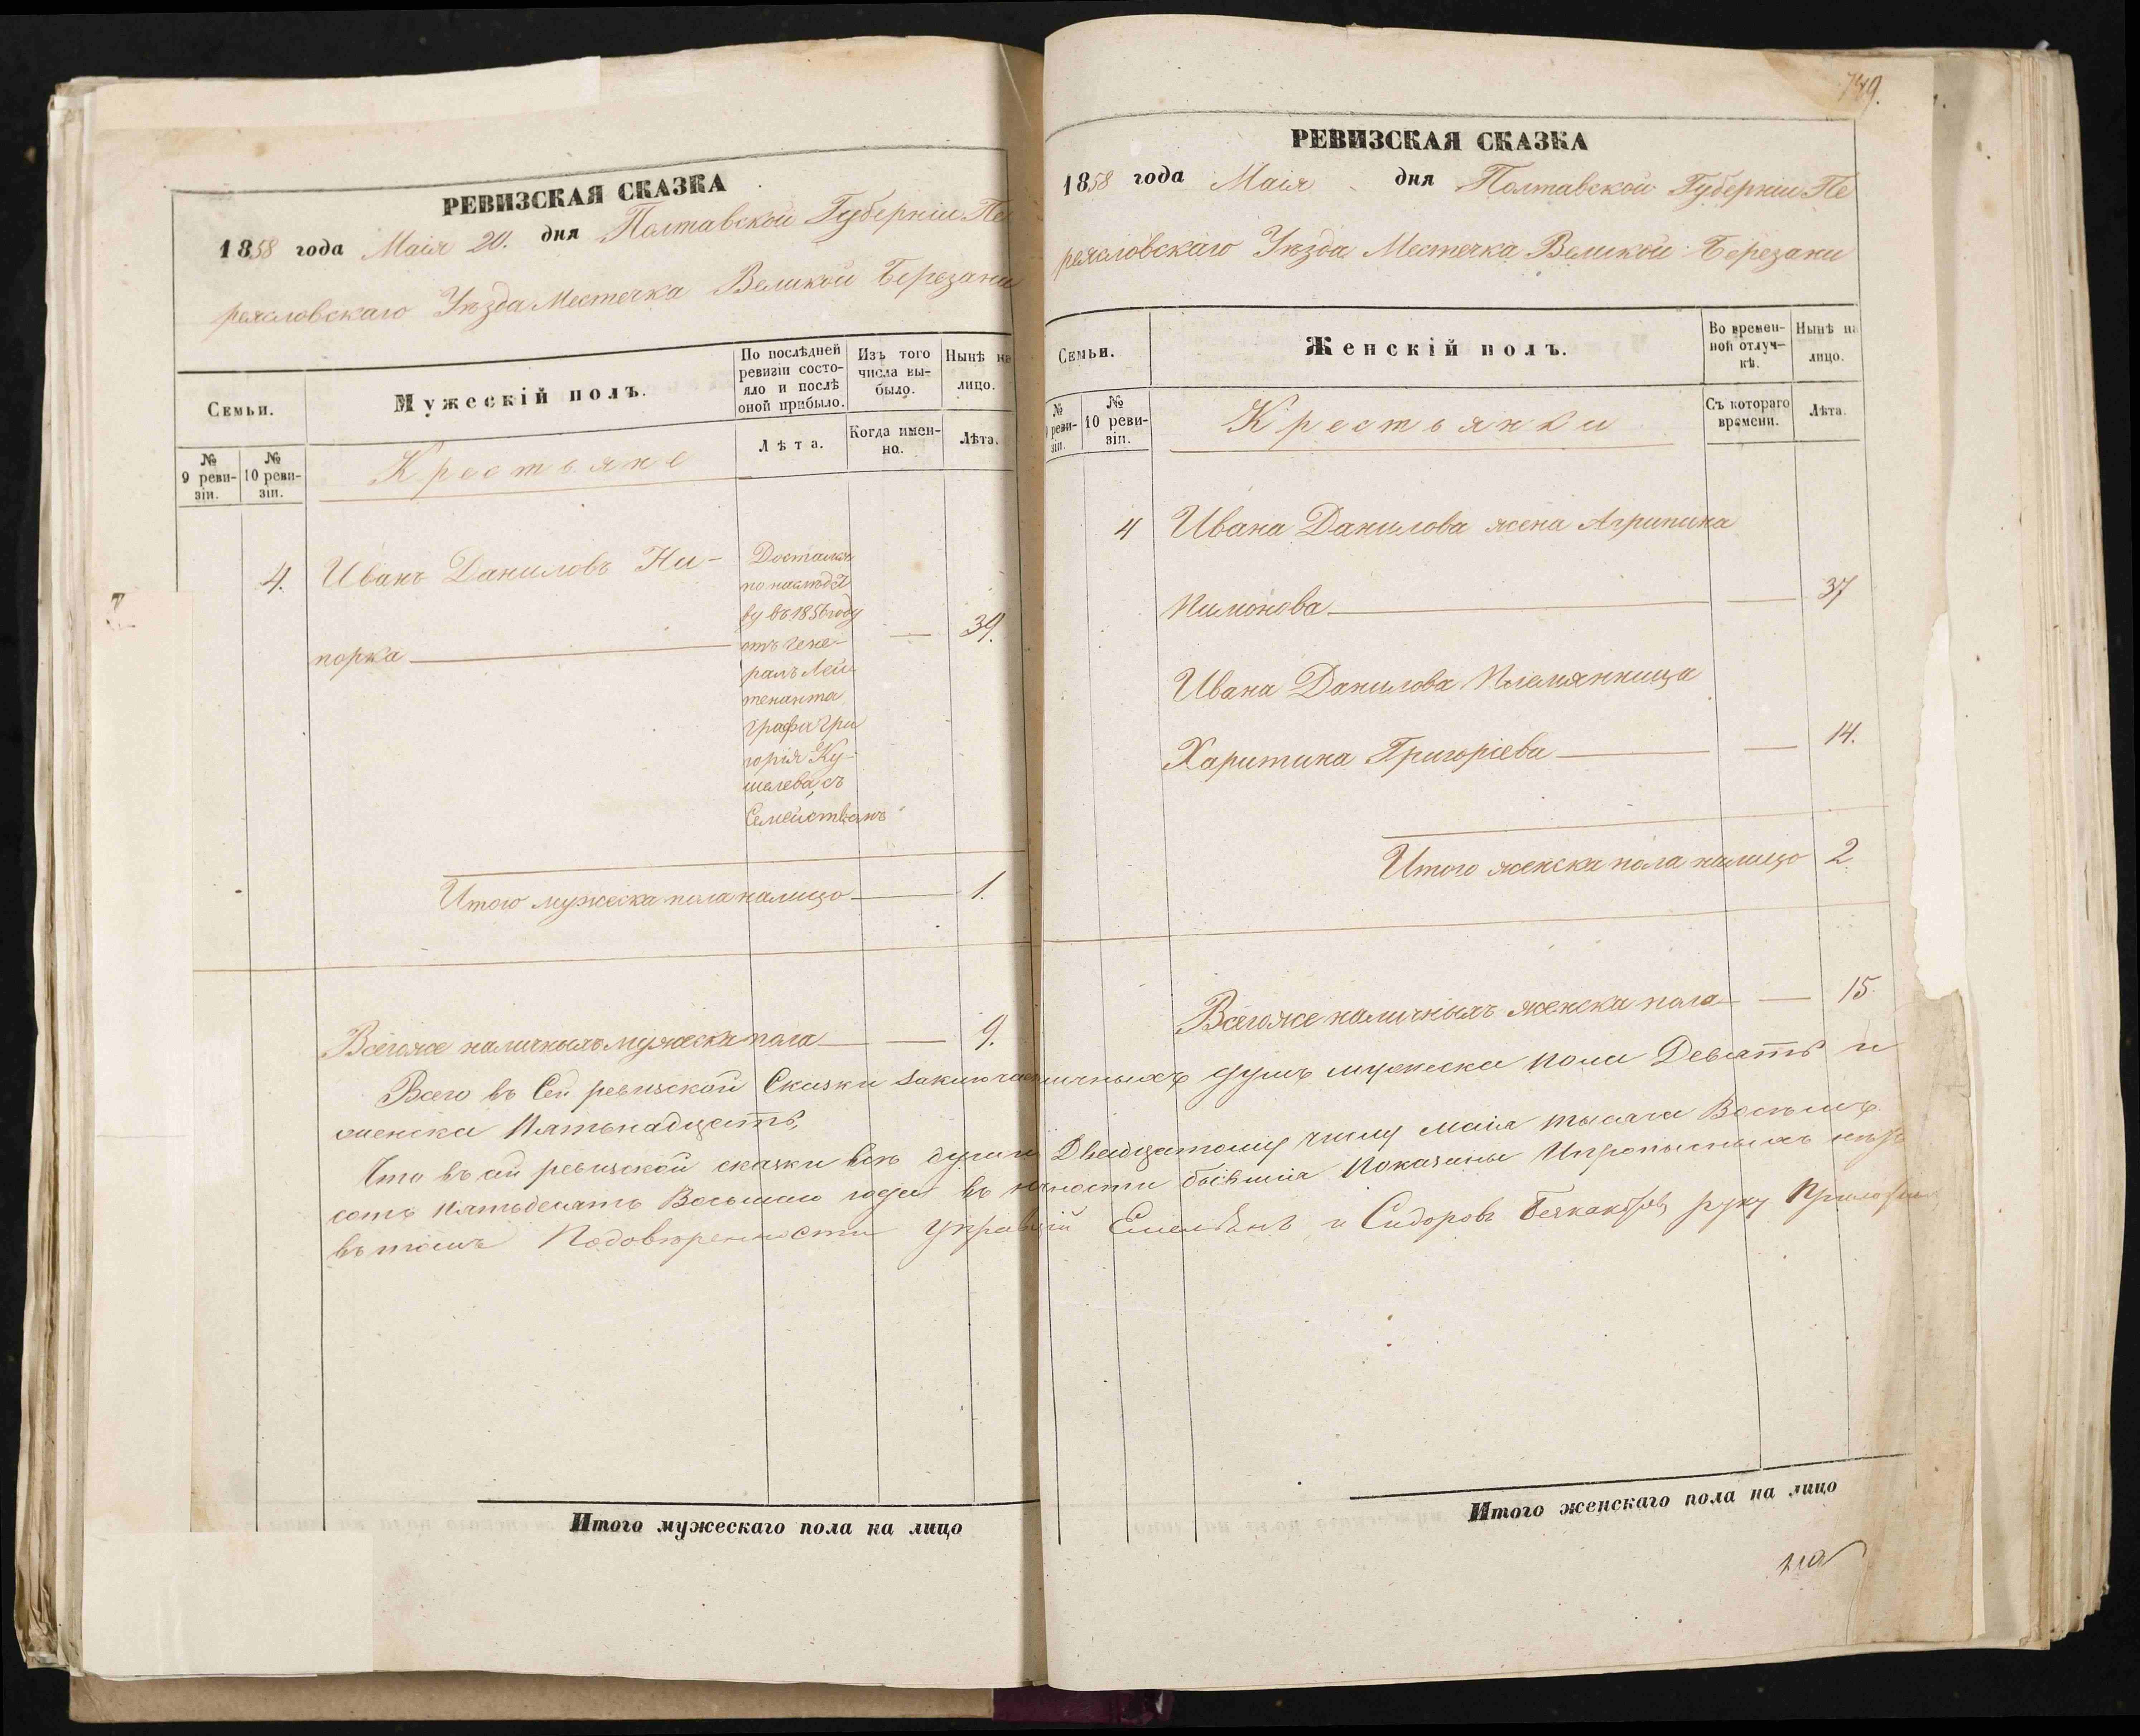 РЕВИЗСКАЯ СКАЗКА
1858 года Маія 20. дня Полтавской Губерніи Пе
реясловскаго Уѣзда Местечка Великой Березани
Семьи.
Мужескій полъ.
По послѣдней ревизіи состо-
яло и послѣ оной прибыло.
Изъ того числа вы-
было.
Нынѣ на
лицо.
№ 9 реви-
зіи.
№ 10 реви-
зіи.
Крестьяне
Лѣта.
Когда имен-
но.
Лѣта.
4. Иванъ Даниловъ Ни-
порка 39.
Достался
по наслѣдст
ву въ 1856 году
отъ Гене-
ралъ Лей-
тенанта
Графа Гри
горія Ку-
шелева, съ
Семействомъ
Итого мужеска пола налицо 1.
Всегоже наличныхъ мужеска пола 9.
749.
РЕВИЗСКАЯ СКАЗКА
1858 года Маія дня Полтавской Губерніи Пе
реясловскаго Уѣзда Местечка Великой Березани
Семьи.
Женскій полъ.
Во времен-
ной отлуч-
кѣ.
Нынѣ на
лицо.
№ реви-
зіи.
№ 10 реви-
зіи.
Крестьянки
Съ котораго
времени.
Лѣта.
4 Ивана Данилова жена Агрипина
Пимонова 37
Ивана Данилова Племянница
Харитина Григоріева 14.
Итого женска пола налицо 2.
Всегоже наличныхъ женска пола 15.
Всего въ Сей ревизской Сказки душъ мужеска пола Девять и
женска Пятьнадцать,
Что въ сей ревизской сказки всѣ души Двадцатому числу Маія тысяча Восемь
сотъ пятьдесятъ Восьмаго года въ бывшія Показаны
въ томъ По довѣренности Емельянъ Сидоровъ руку Приложилъ
Итого мужескаго пола на лицо
Итого женскаго пола на лицо